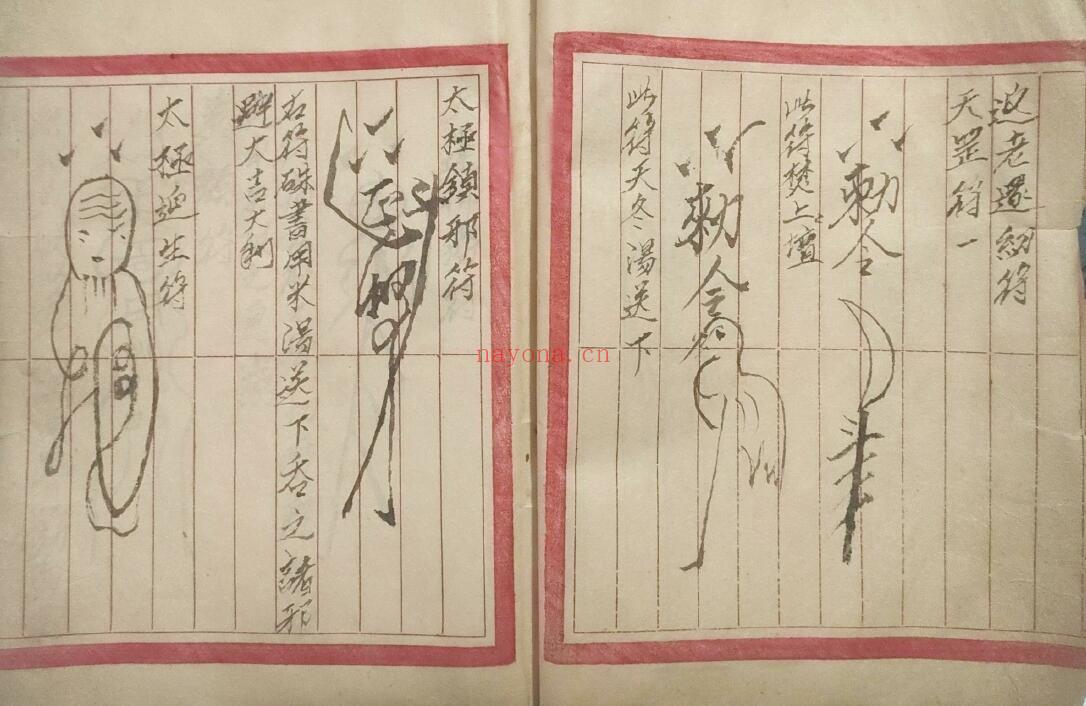 老還幼符
天罡符一
勅令
此符焚上壇
勅令
此符天冬湯送下
太極鎖邪符
右符硃書用米湯送下吞之諸邪
避大吉大利
太極生符
nayona.cn